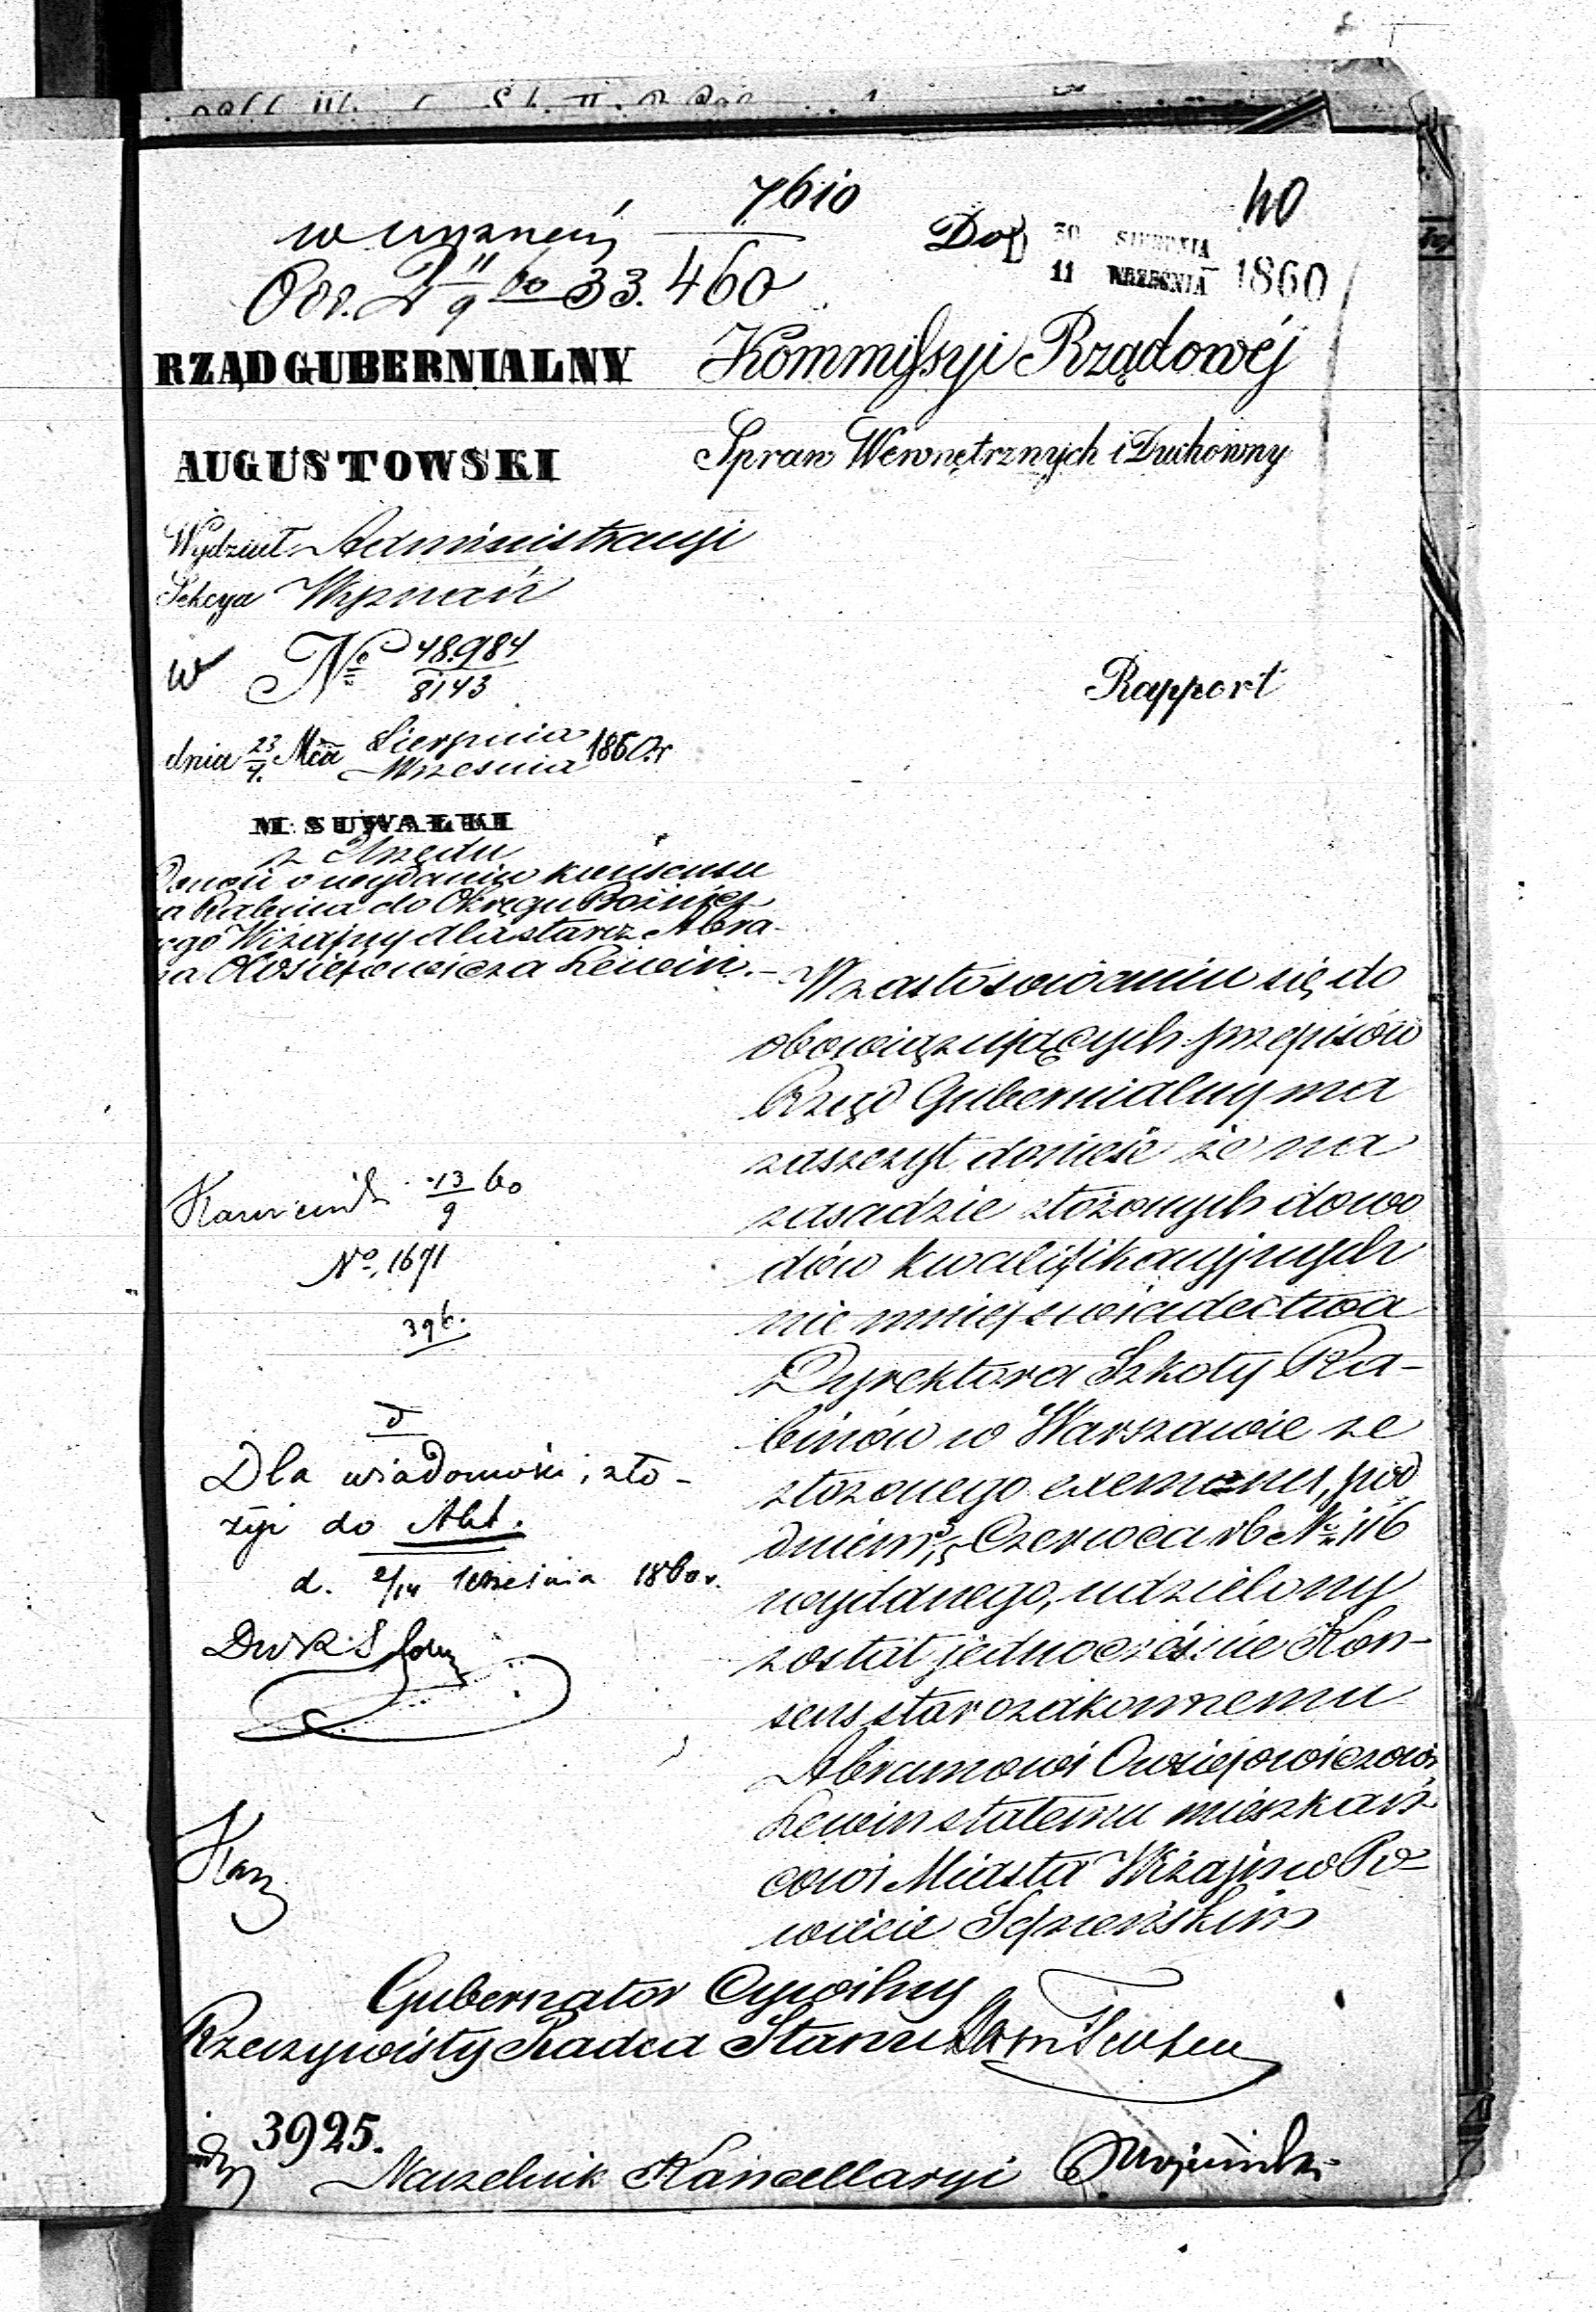 7610
40
w wyznań
Do D 30 SIERPNIA
11 WRZEŚNIA 1860
Od. D 11/9 60 33.460
RZĄD GUBERNIALNY
Kommissyi Rządowéj
AUGUSTOWSKI
Spraw Wewnętrznych i Duchowny
Wydział Administracyi
Sekcya Wyznań
w No 48.984
8143
Rapport
dnia 23/4. Mca Sierpnia
Września 1860.r
M. SUWAŁKI
z Urzędu
o wydaniu konsensu
a Rabina do Okręgu Bóżnicz
ego Wiżajny dla starz. Abra-
a Owsiejowicza Lewin.-
W zastosowaniu się do
obowiązujących przepisów
Rząd Gubernialny ma
zaszczyt donieść że na
zasadzie złożonych dowo
dów kwalifikacyjnych
nie mniej świadectwa
Dyrektora Szkoły Ra-
binów w Warszawie ze
złożonego exemenu, pod
dniem 3/15 Czerwca rb No 116
wydanego, udzielony
został jednocześnie Kon-
sens starozakonnemu
Abramowi Owsiejowiczowi
Lewin stałemu mieszkań-
cowi Miasta Wiżajn w Po-
wiecie Sejneńskim
13/9 60
No. 1671
396.
Dla wiadomości, zło-
żyć do Akt.
d. 2/14 Września 1860 r.
Gubernator Cywilny
Rzeczywisty Radca Stanu
3925.
Naczelnik Kancellaryi